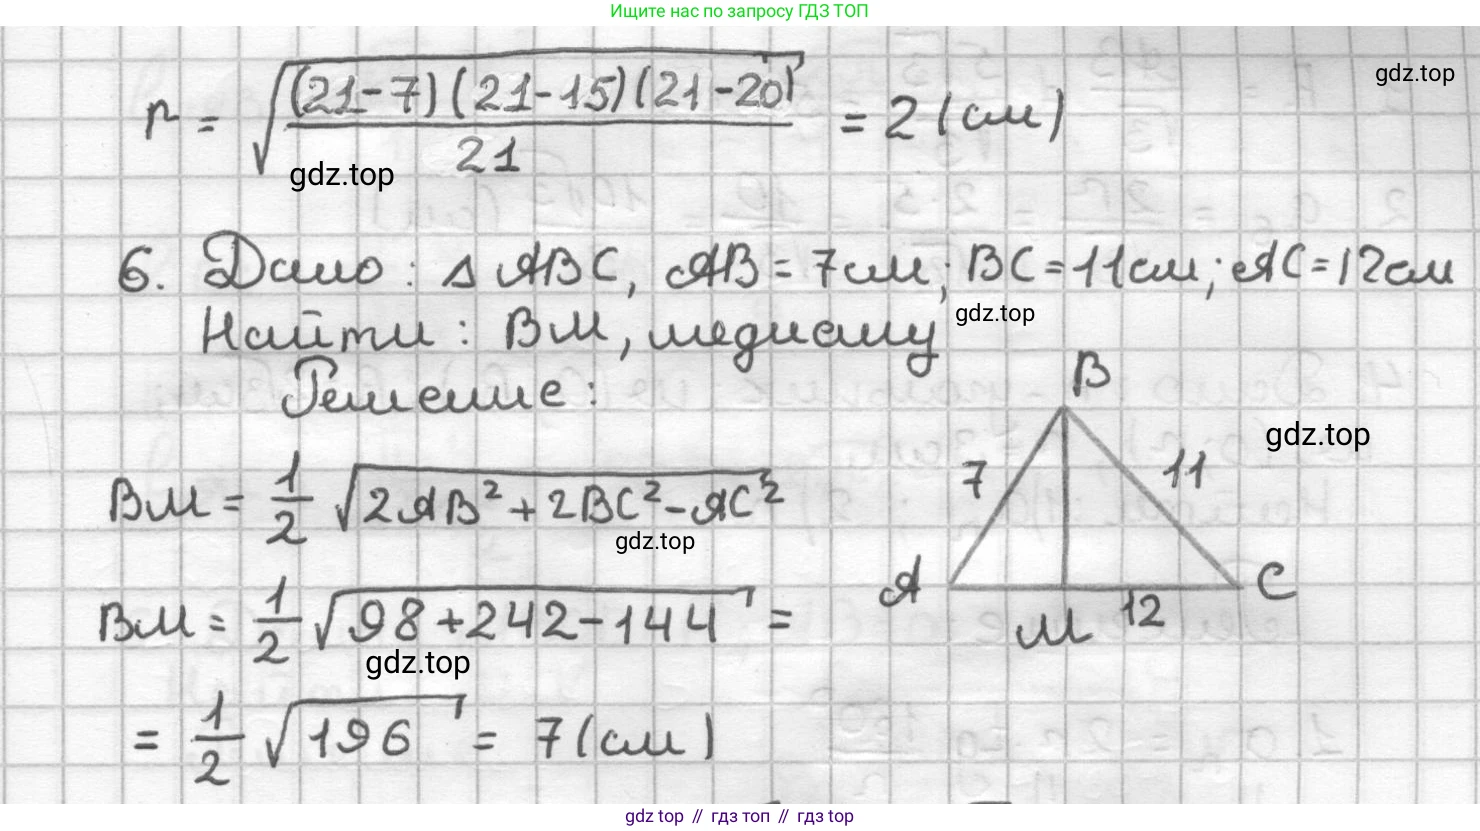 Ищите нас по запросу ГДЗ ТОП
gdz.top
r = √((21-7)(21-15)(21-20)/21) = 2 (см)
gdz.top
6. Дано: Δ ABC, AB = 7см; BC = 11см; AC = 12см
gdz.top
Найти: BM, медиану
Решение:
B
gdz.top
7
11
BM = 1/2 √(2AB² + 2BC² - AC²)
gdz.top
A
C
M
12
BM = 1/2 √(98 + 242 - 144) =
gdz.top
= 1/2 √196 = 7 (см)
gdz top // гдз топ // гдз top